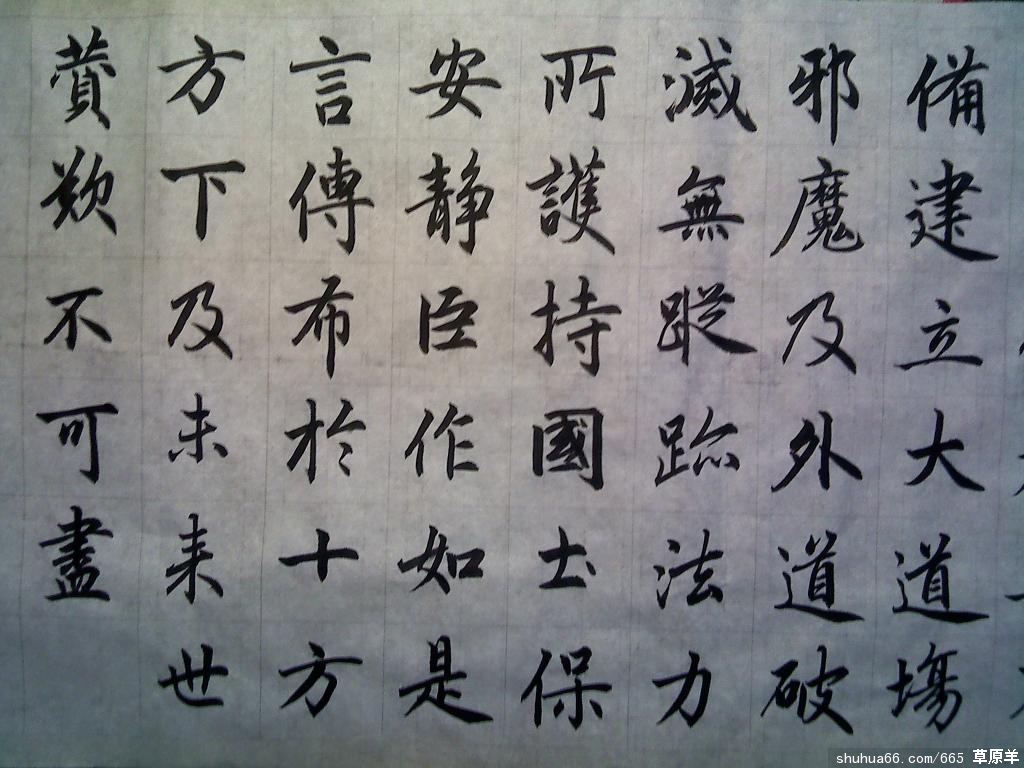 備建立大道場
邪魔及外道破
滅無蹤跡法力
所護持國土保
安靜臣作如是
言傳布於十方
方下及未来世
賛歎不可盡
shuhua66.com/665 草原羊